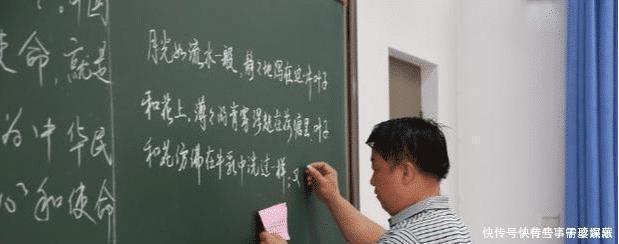 使命,就是
为中华民
和使命
月光如流水一般,静々地泻在这一片叶子
和花上,薄々的青雾浮起在荷塘里 叶子
和花仿佛在牛乳中洗过一样;又
快传号